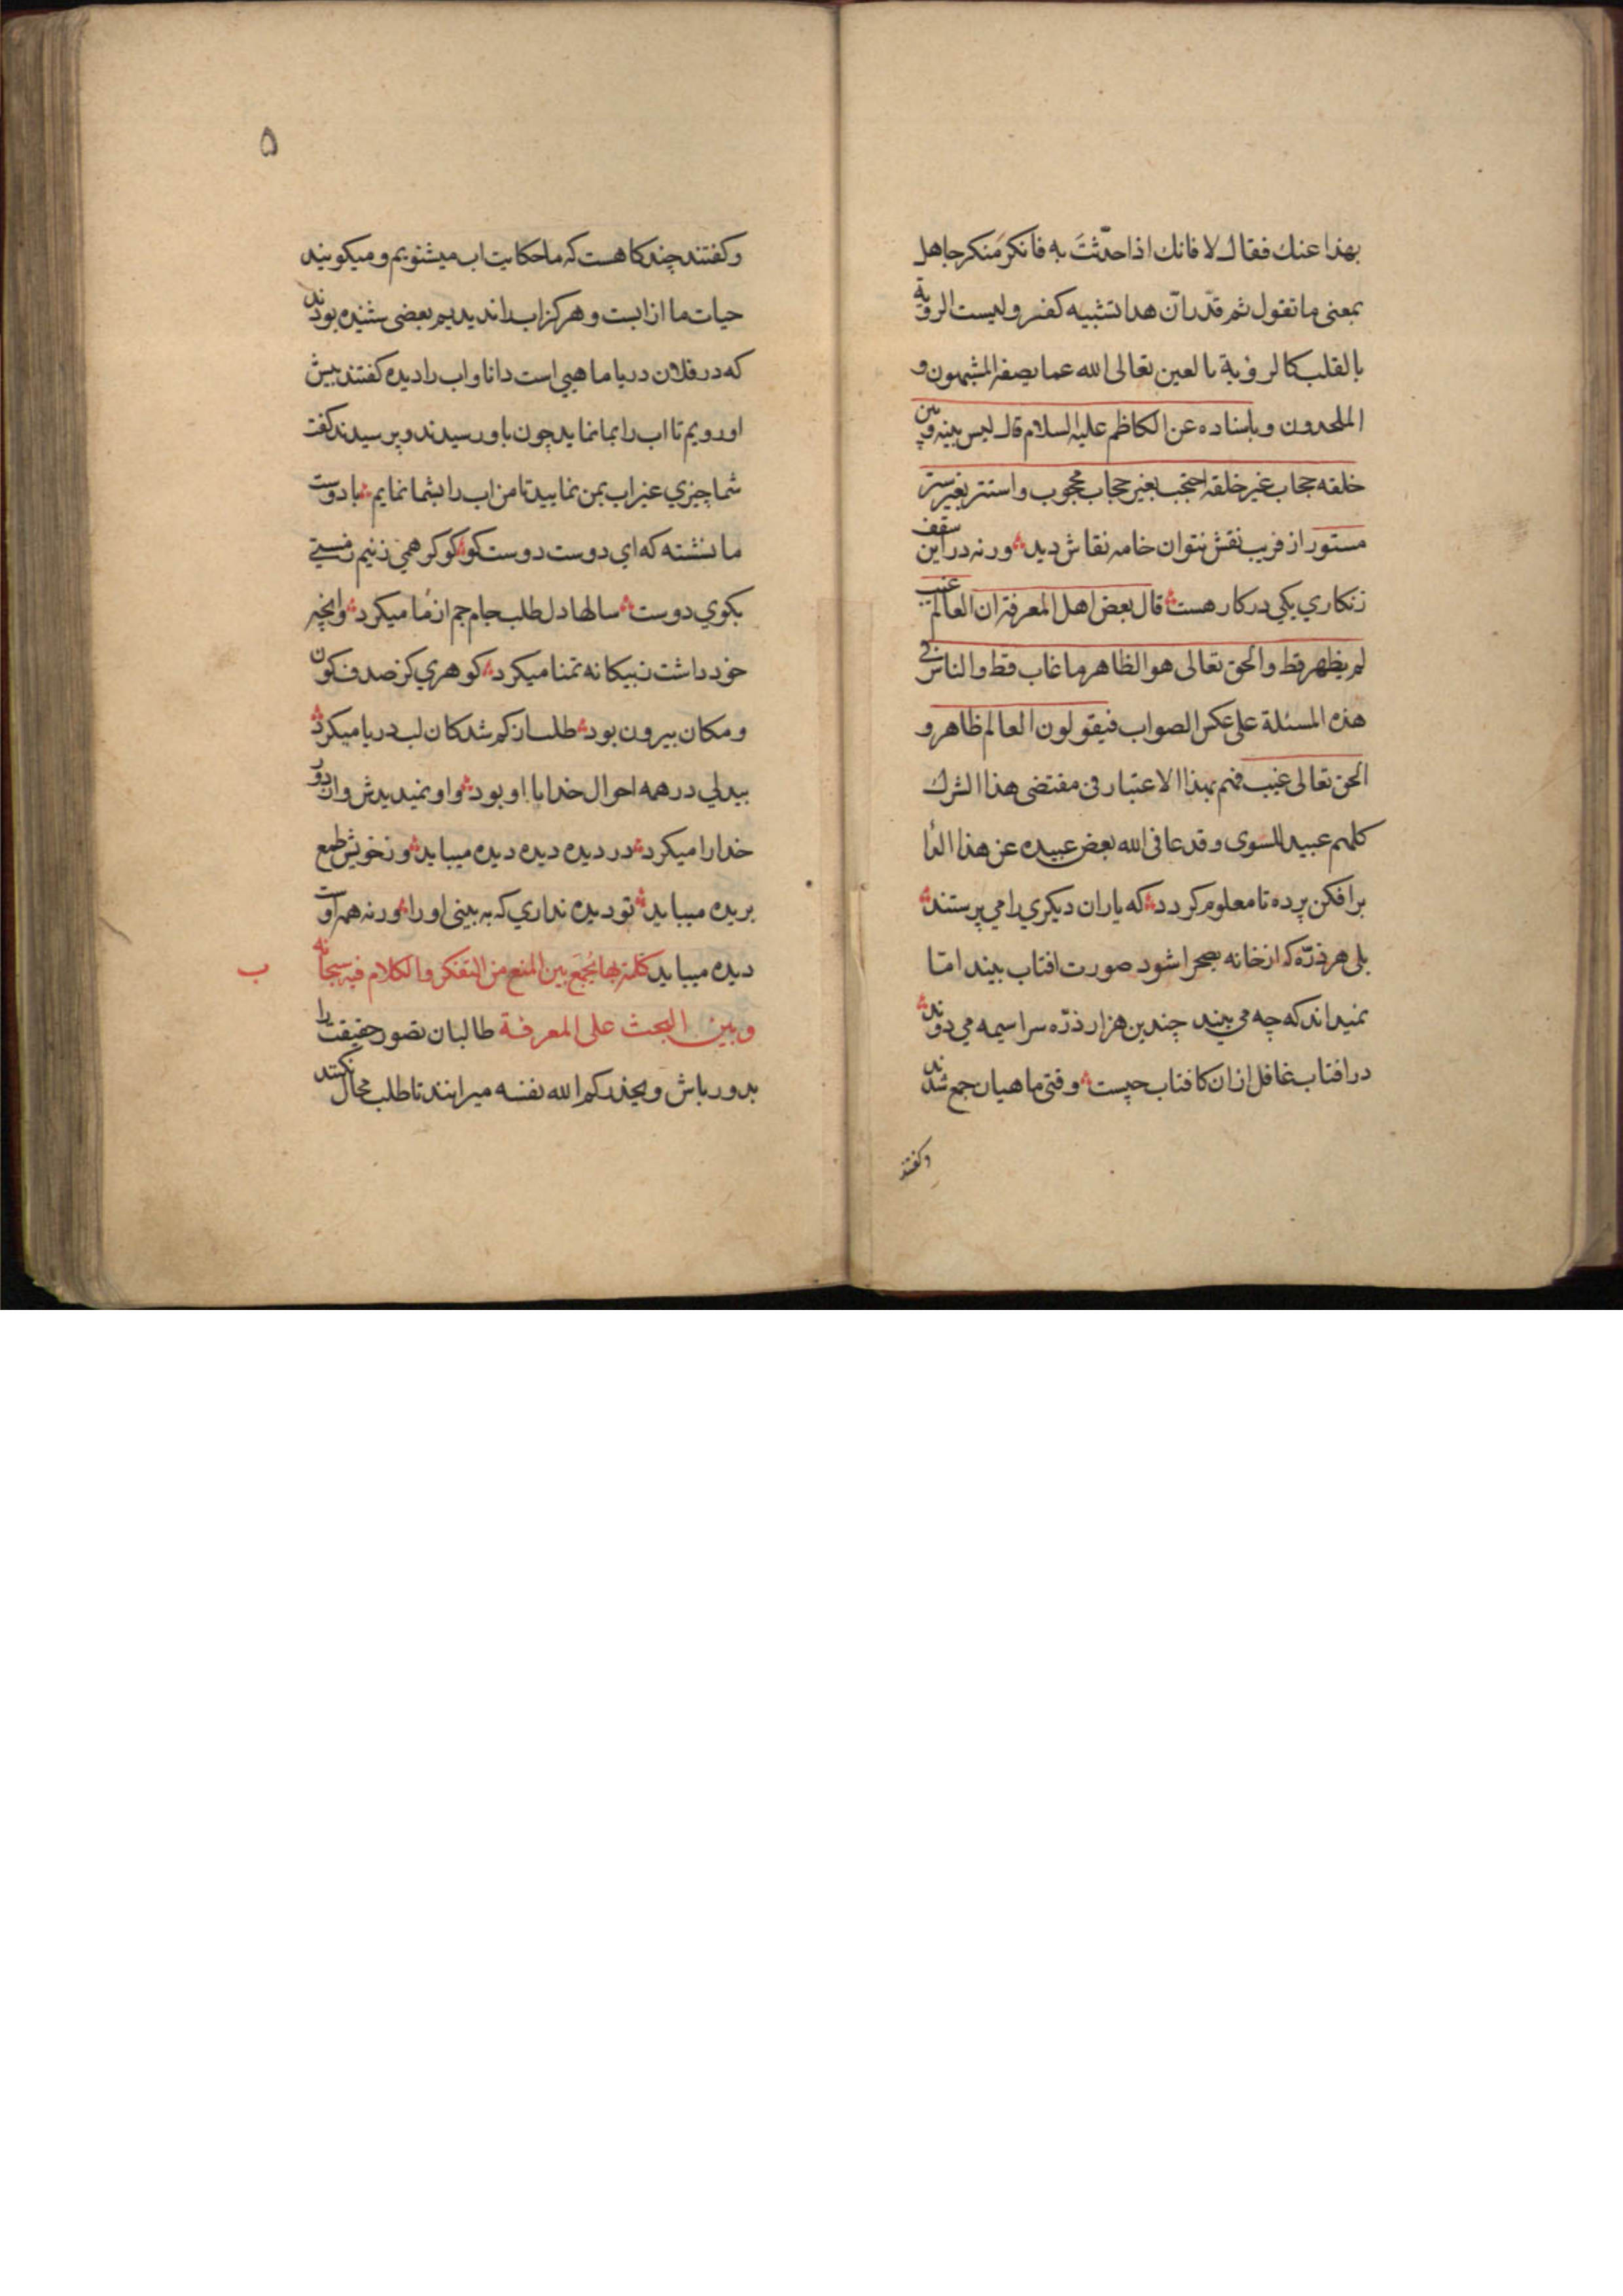 بهذا عنك فقال لا فانك اذا حدّثتَ به فانكرَ منكر جاهل
بمعنى ما تقول ثم قدّر انّ هذا تشبيه كفر وليست الروية
بالقلب كالرؤية بالعين تعالى الله عما يصفه المشبهون و
الملحدون وباسناده عن الكاظم عليه السلام قال ليس بينه وبين
خلقه حجاب غير خلقه احتجب بغير حجاب محجوب واستتر بغير ستر
مستور از فريب نقش نتوان خامه نقاش ديد ورنه در اين سقف
زنكاري يكي در كار هست قال بعض اهل المعرفة ان العالم غيب
لم يظهر قط والحق تعالى هو الظاهر ما غاب قط والناس في
هذه المسئلة على عكس الصواب فيقولون العالم ظاهر و
الحق تعالى غيب فهم بهذا الاعتبار في مقتضى هذا الشرك
كلهم عبيد للسوى وقد عافى الله بعض عبيده عن هذا الدّا
برافكن پرده تا معلوم كردد كه ياران ديكري را مي پرستند
بلى هر ذرّه كه از خانه بصحرا شود صورت افتاب بيند امّا
نميداند كه چه مي بيند چندين هزار ذرّه سراسيمه مي دوند
در افتاب غافل ازان كافتاب چيست وقتى ماهيان جمع شدند
وكفتند
۵
وكفتند چند كاهست كه ما حكايت اب ميشنويم و ميكويند
حيات ما از ابست و هركز اب را نديديم بعضى شنيده بودند
كه در فلان دريا ماهيي است دانا و اب را ديده كفتند پيش
او رويم تا اب را بما نمايد چون باو رسيدند و پرسيدند كفت
شما چيزي غير اب بمن نماييد تا من اب را بشما نمايم با دوست
ما نشسته كه اي دوست دوست كو كوكو همي زنيم ز مستي
بكوي دوست سالها دل طلب جام جم از ما ميكرد وانچه
خود داشت ز بيكانه تمنا ميكرد كوهري كز صدف كون
و مكان بيرون بود طلب از كم شدكان لب دريا ميكرد
بيدلي در همه احوال خدا با او بود او نميديدش و از دور
خدا را ميكرد در ديده ديده ديده ميبايد وز خويش طمع
بريده ميبايد تو ديده نداري كه به بيني او را ورنه همه اوست
ديده ميبايد كلمة بها يُجمَع بين المنع من التفكر والكلام فيه سبحانه
ب
وبين البحث على المعرفة طالبان تصور حقيقت را
بدورباش ويحذركم الله نفسه ميرانند تا طلب محال نكنند